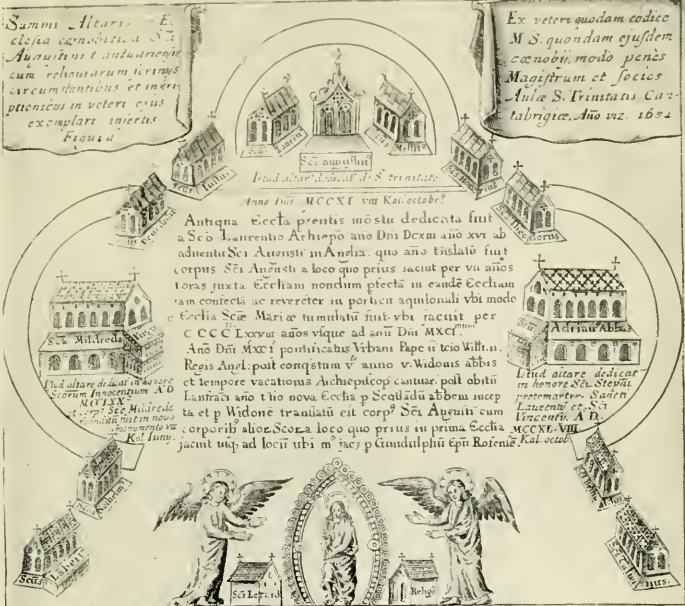 Summi Altaris Ec
clesia cœnobitica Sci
Augustini Cantuariensis
cum reliquiarum scrinijs
circumstantibus et inscri
ptionibus in veteri ejus
exemplari insertis
Figura
Ex veteri quodam codice
M S. quondam ejusdem
cœnobij, modo penès
Magistrum et socios
Aulæ S. Trinitatis Can-
tabrigiæ, Año viz. 1652
Scs Laurent
Scs Mellit
Sci augustin⁹
Scus Iustus
Scs Deusdedit
Scs Theodorus
Istud altar dedicat e S trinitati
Anno Dñi MCCXL vııı Kal. octobr⁹
Antiqua Eccl̃ia p̃sentis mõstii dedicata fuit
a Scõ Laurentio Achiepõ ano Dñi Dcxııı año xvı ab
adventu Sci Augusti in Anglia. quo año tñslatũ fuit
corpus Sci Augusti a loco quo prius iacuit per vıı años
foras juxta Eccliam nondum pfectã in eandẽ Eccliam
iam confectã ac reverẽter in porticu aquilonali vbi modo
e Ecclia Scẽ Mariæ tumulatũ fuit vbi iacuit per
CCCC Lxxvııı años vsque ad annũ Dñi MXCI
Año Dñi MXC i pontificatus Vrbani Pape ıı tcio Will ıı
Regis Angl: post conqstum v anno v. Widonis abbis
et tempore vacationis Achiepiscop̃ cantuar. post obitũ
Lanfraci año t'tio nova Ecclia p Scotladũ abbem incep
ta et p Widonẽ tranlatũ est corp⁹ Sci Augusti cum
corporib⁹ alior. Scor. a loco quo prius in prima Ecclia
jacuit usq ad locũ ubi m⁰ jacʒ p Gundulphũ Epũ Rofense
Sca Mildreda
Virgo
Istud altare dedicat in honore
Scorum Innocentium A D
MCCLXX
et corp⁹ Sce Mildrede
translatũ fuit in novo
monumento vıı
Kal Iunij
Adrian⁹ Abbas
Istud altare dedicat
in honore Sci. Stepni
protomartir Sancti
Laurentij et Sci
Vincentij A. D.
MCCXL VIII
Kal. octob
Scs Letard
Reliq